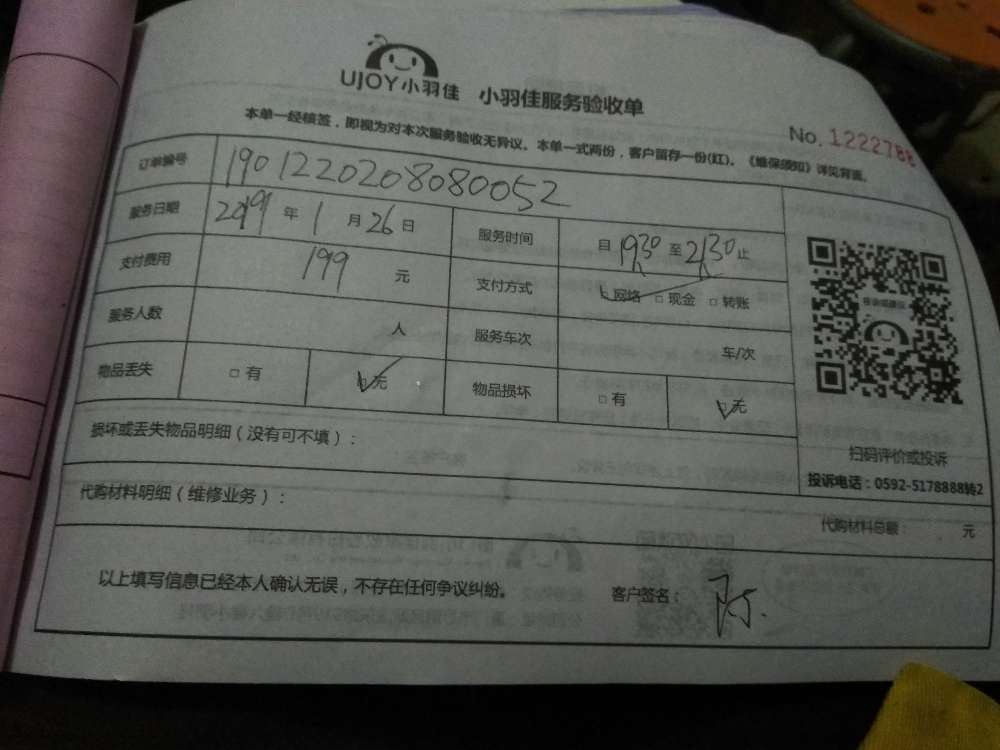 UJOY小羽佳 小羽佳服务验收单
No.1222788
本单一经核签，即视为对本次服务验收无异议。本单一式两份，客户留存一份(红)。《维保须知》详见背面。
订单编号 190122020808​0052
服务日期 2019年1月26日 服务时间 自1930至2130止
支付费用 199元 支付方式 □网络 □现金 □转账
服务人数 人 服务车次 车/次
物品丢失 □有 □无 物品损坏 □有 □无
损坏或丢失物品明细（没有可不填）：
扫码评价或投诉
投诉电话：0592-5178888转2
代购材料明细（维修业务）：
代购材料总额： 元
以上填写信息已经本人确认无误，不存在任何争议纠纷。 客户签名：陈